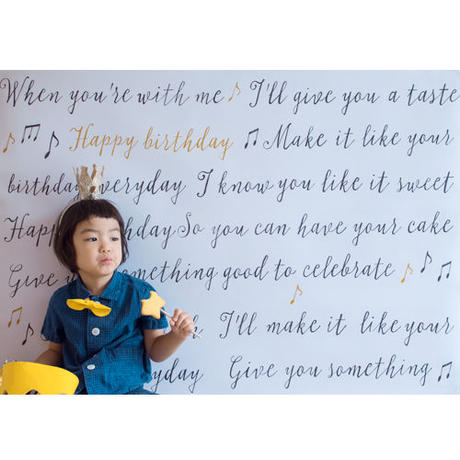 When you're with me I'll give you a taste
Happy birthday Make it like your
birthday everyday I know you like it sweet
Happ thday So you can have your cake
Give something good to celebrate
I'll make it like your
yday Give you something